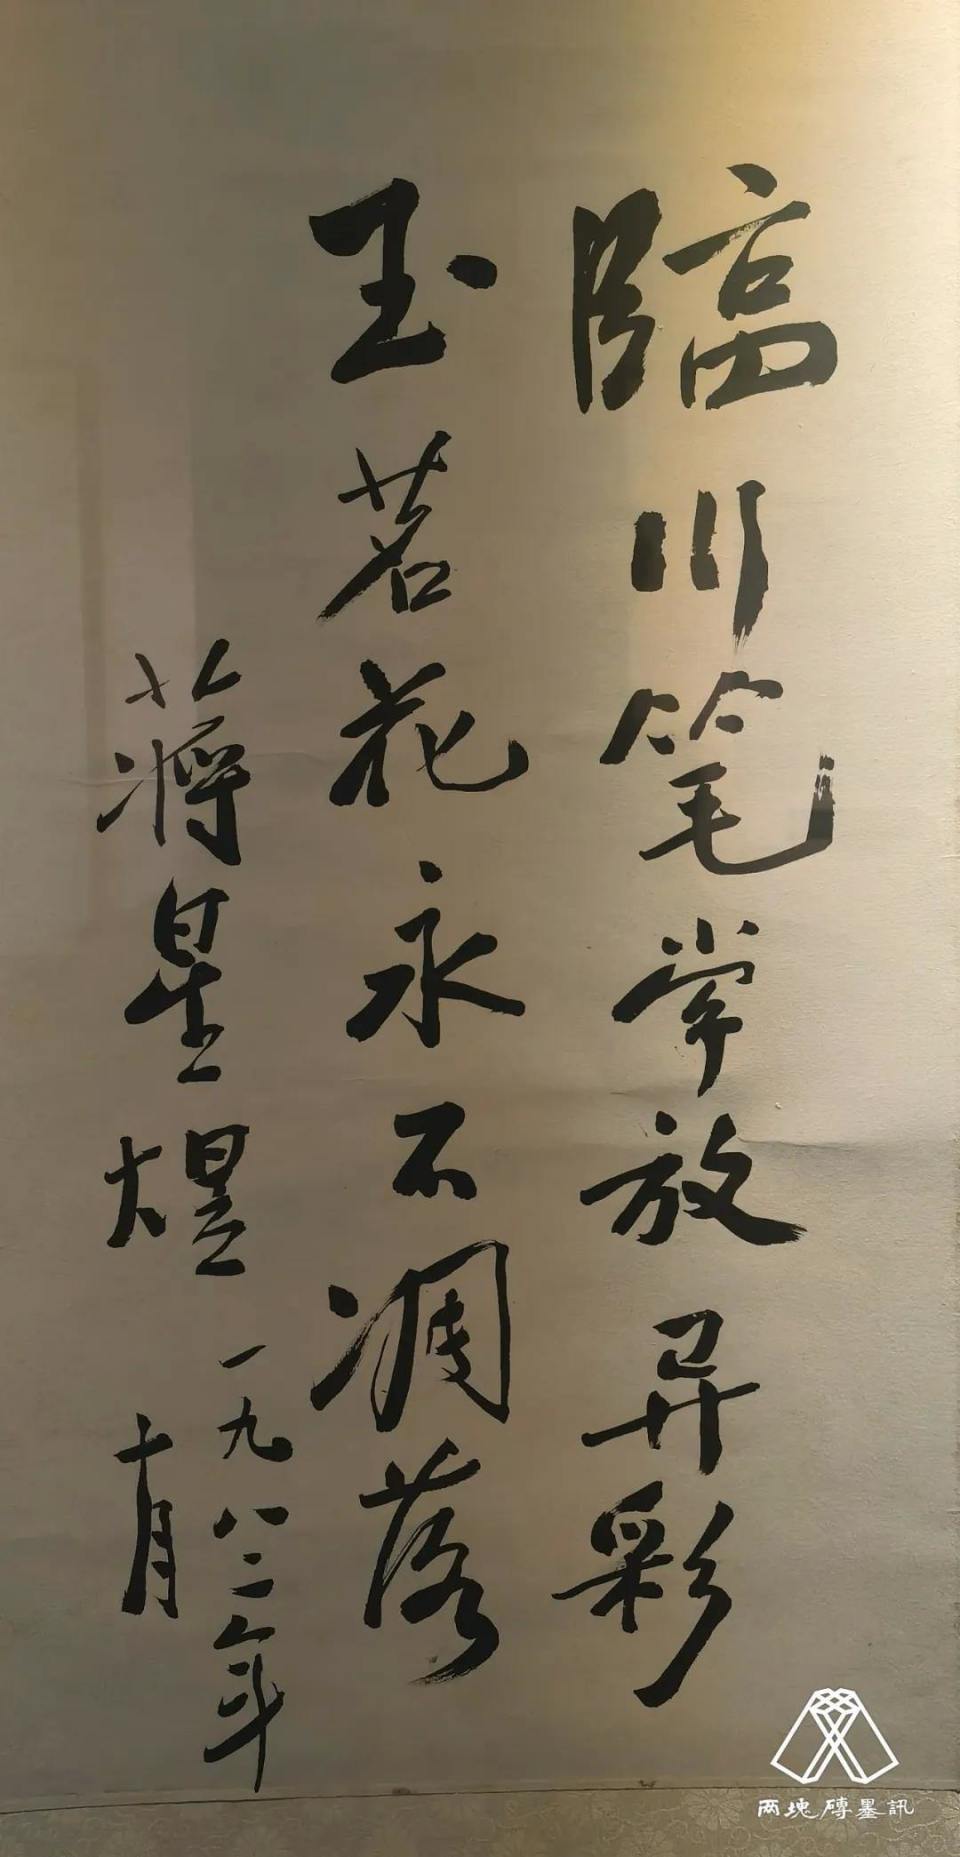 臨川笔常放异彩
玉茗花永不凋落
蒋星煜
一九八二年
十月
两塊磚墨訊